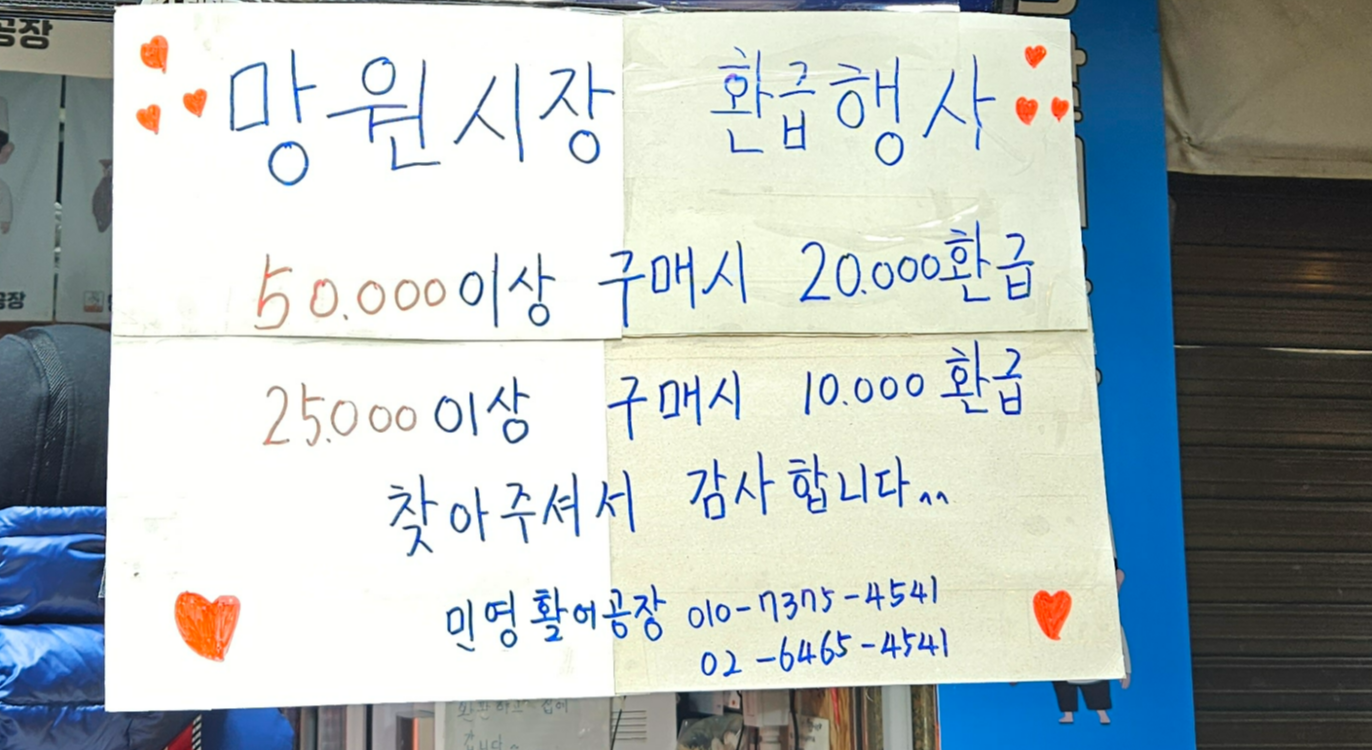 공장
망원시장 환급행사
50.000이상 구매시 20.000환급
25.000이상 구매시 10.000 환급
찾아주셔서 감사합니다^^
민영활어공장 010-7375-4541
02-6465-4541
공장